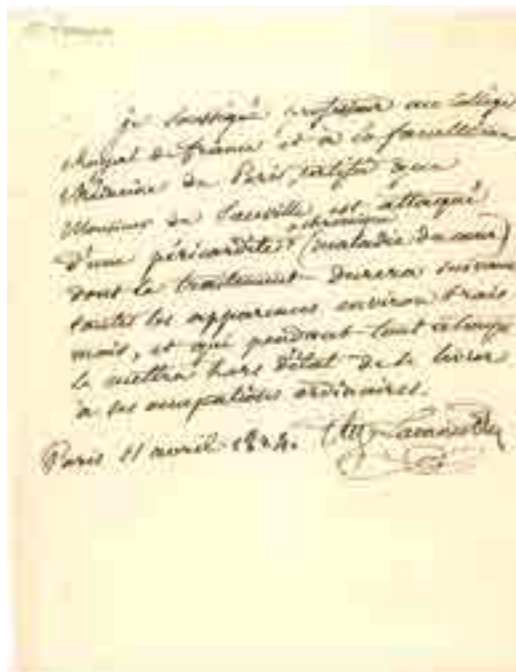 je soussigné professeur au Collège
Royal de france et à la faculté de
Médecine de Paris, certifie que
Monsieur de est attaqué
d'une péricardite chronique (maladie du cœur)
dont le traitement durera suivant
toutes les apparences environ trois
mois, et qui pendant tout ce temps
le mettra hors d'état de se livrer
à ses occupations ordinaires.
Paris 11 avril